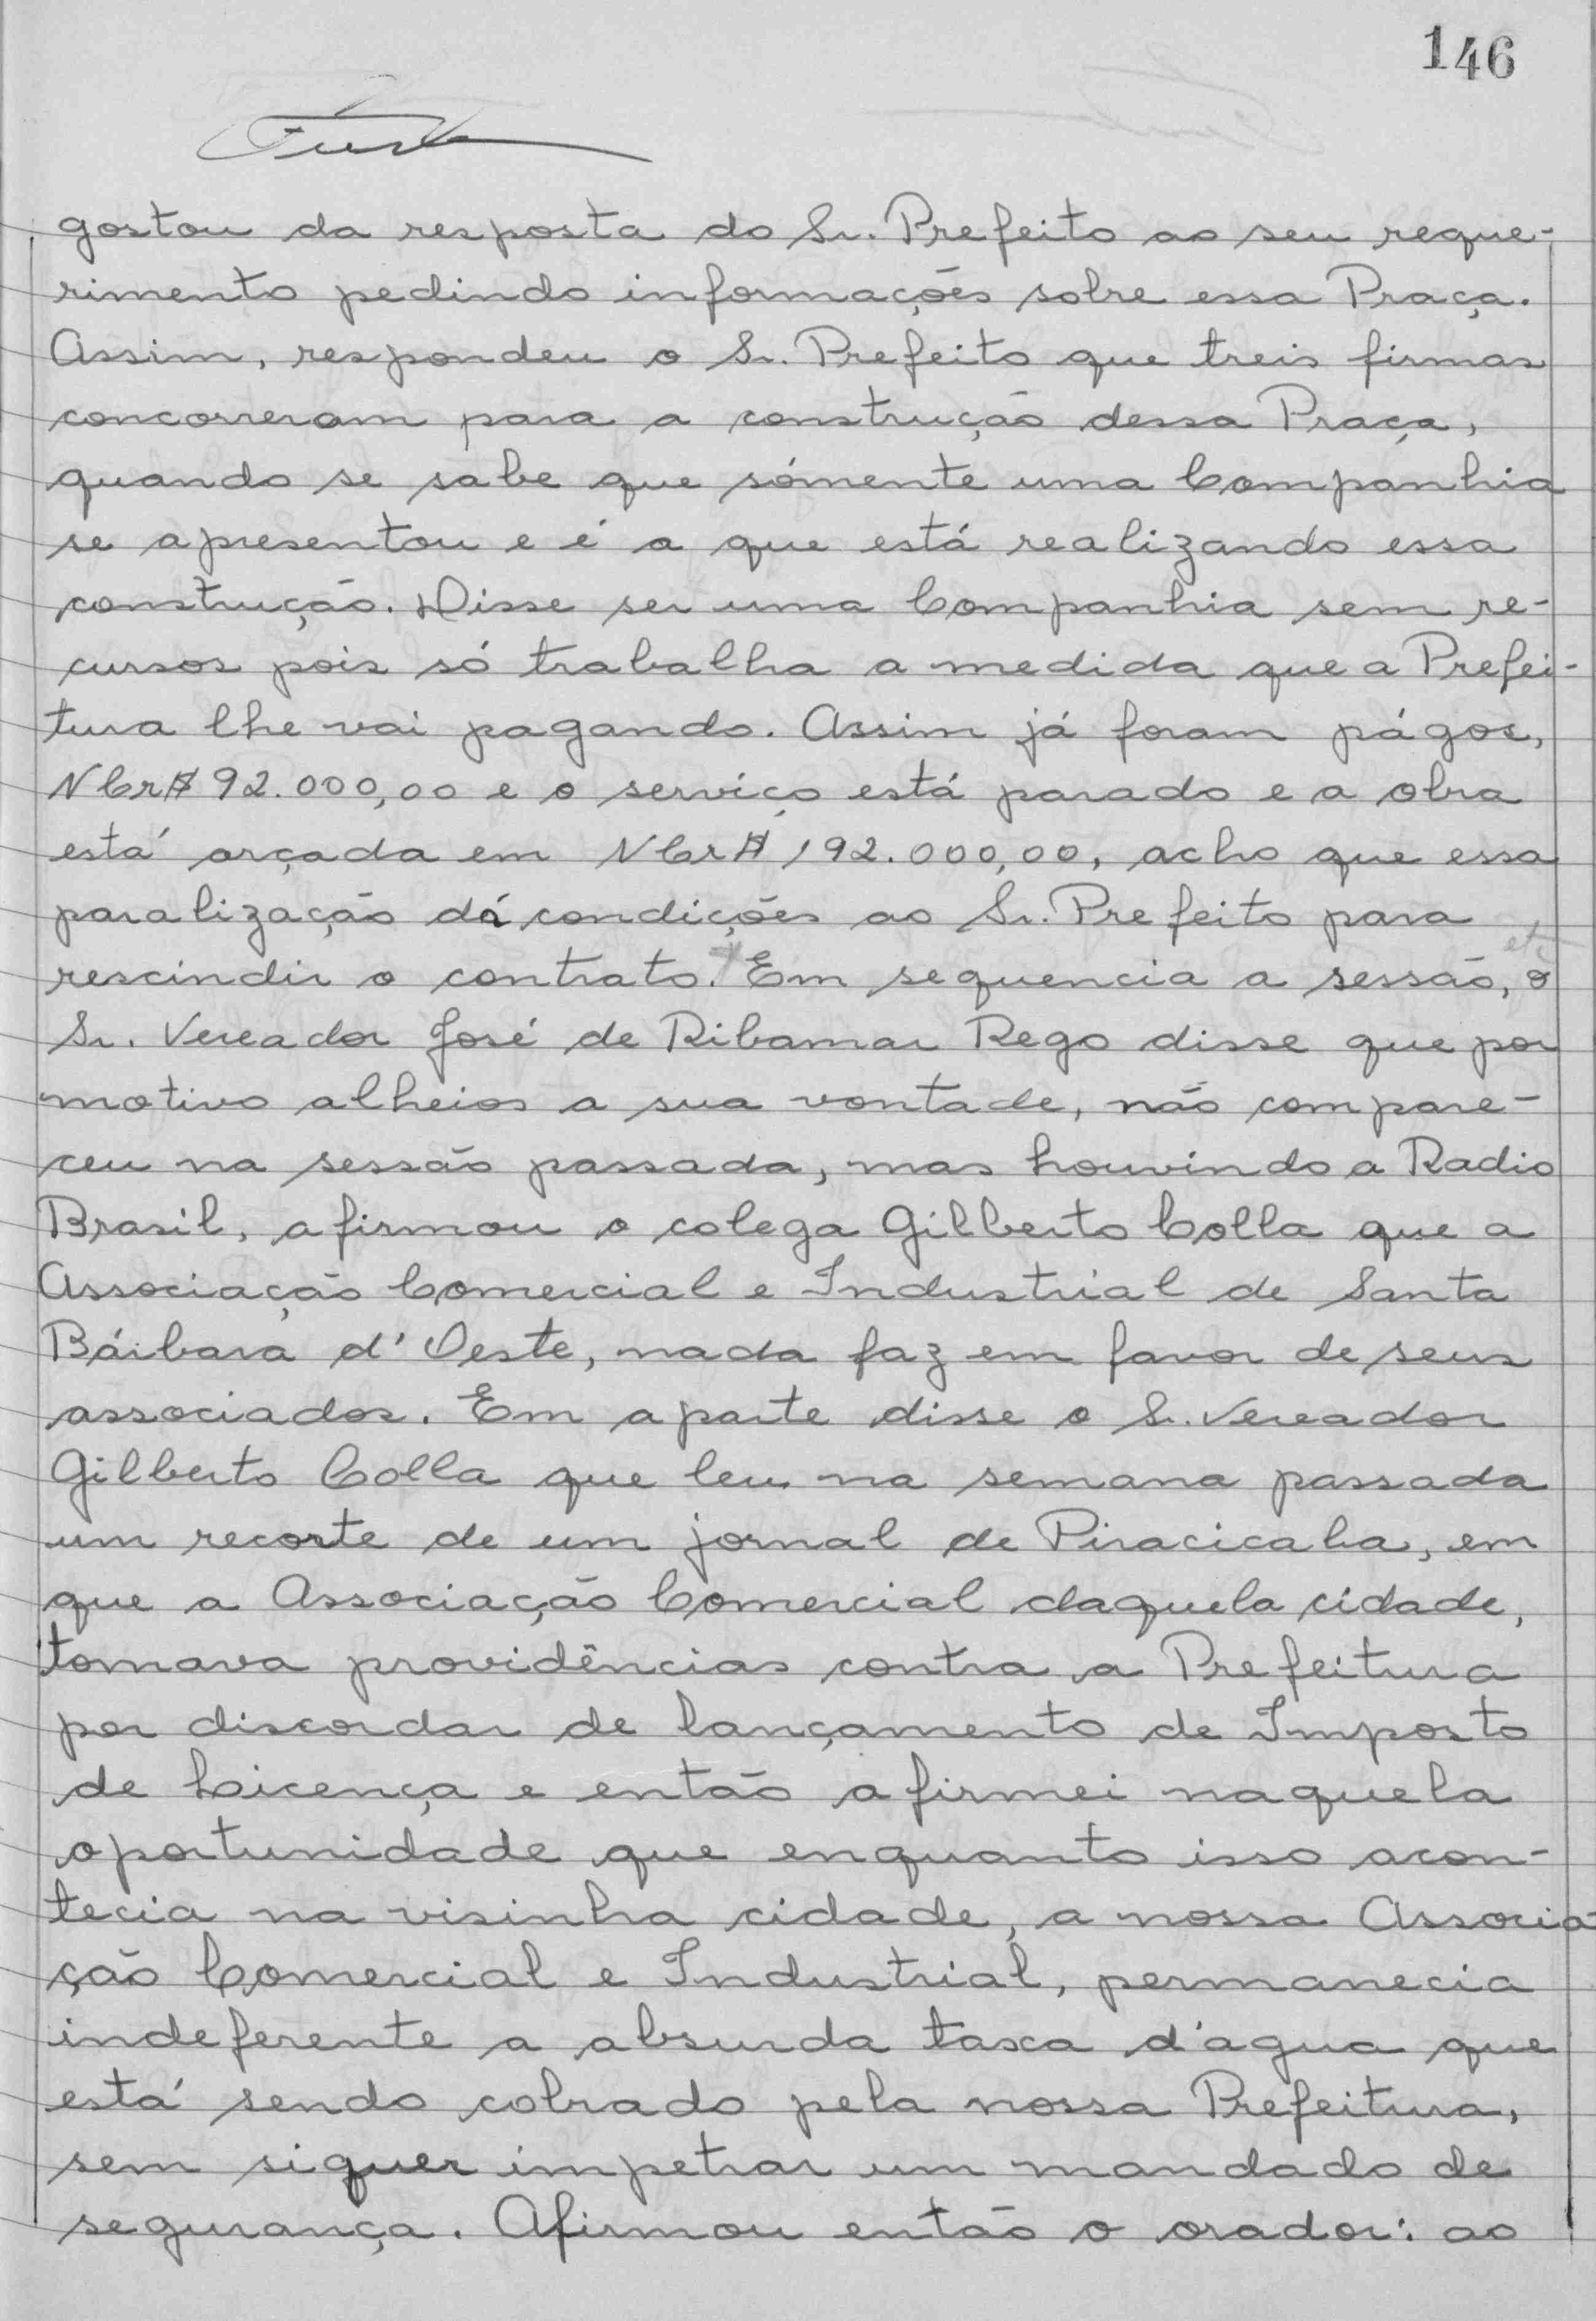 146
gostou da resposta do Sr. Prefeito ao seu reque-
rimento pedindo informações sobre essa Praça.
Assim, respondeu o Sr. Prefeito que treis firmas
concorreram para a construção dessa Praça,
quando se sabe que sómente uma Companhia
se apresentou e é a que está realizando essa
construção. Disse ser uma Companhia sem re-
cursos pois só trabalha a medida que a Prefei-
tura lhe vai pagando. Assim já foram págos,
NCr$ 92.000,00 e o serviço está parado e a obra
está orçada em NCr$ 192.000,00, acho que essa
paralização dá condições ao Sr. Prefeito para
rescindir o contrato. Em sequencia a sessão, o
Sr. Vereador José de Ribamar Rego disse que por
motivo alheios a sua vontade, não compare-
ceu na sessão passada, mas houvindo a Radio
Brasil, afirmou o colega Gilberto Colla que a
Associação Comercial e Industrial de Santa
Bárbara d'Oeste, nada faz em favor de seus
associados. Em aparte disse o Sr. Vereador
Gilberto Colla que leu na semana passada
um recorte de um jornal de Piracicaba, em
que a Associação Comercial daquela cidade,
tomava providências contra a Prefeitura
por discordar de lançamento de Imposto
de Licença e então afirmei naquela
oportunidade que enquanto isso acon-
tecia na visinha cidade, a nossa Associa-
ção Comercial e Industrial, permanecia
indeferente a absurda taxa d'agua que
está sendo cobrado pela nossa Prefeitura,
sem siquer impetrar um mandado de
segurança. Afirmou então o orador: ao